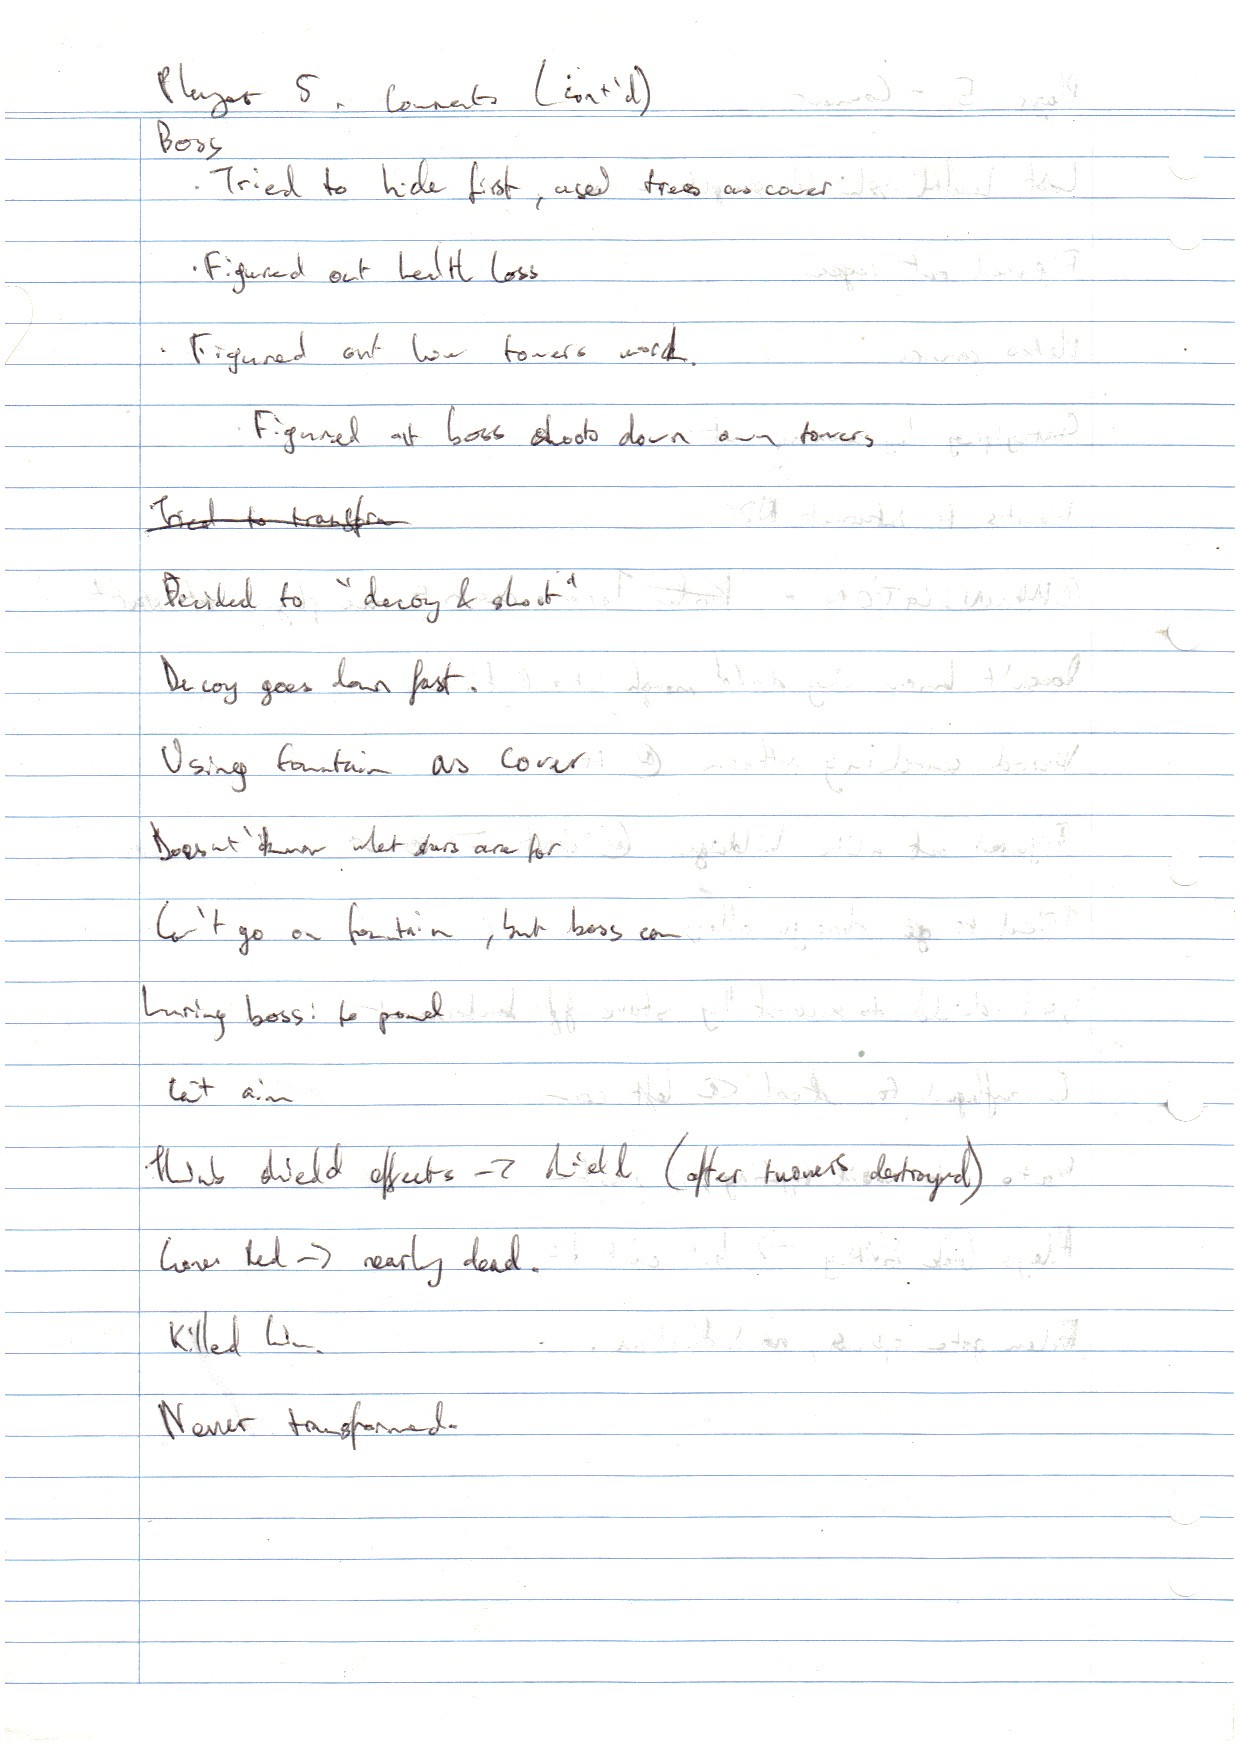 Player 5. Comments (cont'd)
Boss
· Tried to hide first, used trees as cover
· Figured out health loss
· Figured out how towers work.
· Figured out boss shoots down own towers
Tried to transfor
Decided to "decoy & shoot"
Decoy goes down fast.
Using fountain as cover
Doesnt' know what stars are for
Can't go on fountain, but boss can
Luring boss: to pond
Can't aim
Thinks shield effects -> shield (after towers destroyed)
Cover Red -> nearly dead.
Killed him.
Never transformed.